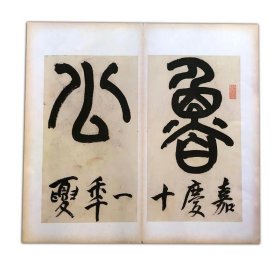 魯公
嘉慶十一年夏